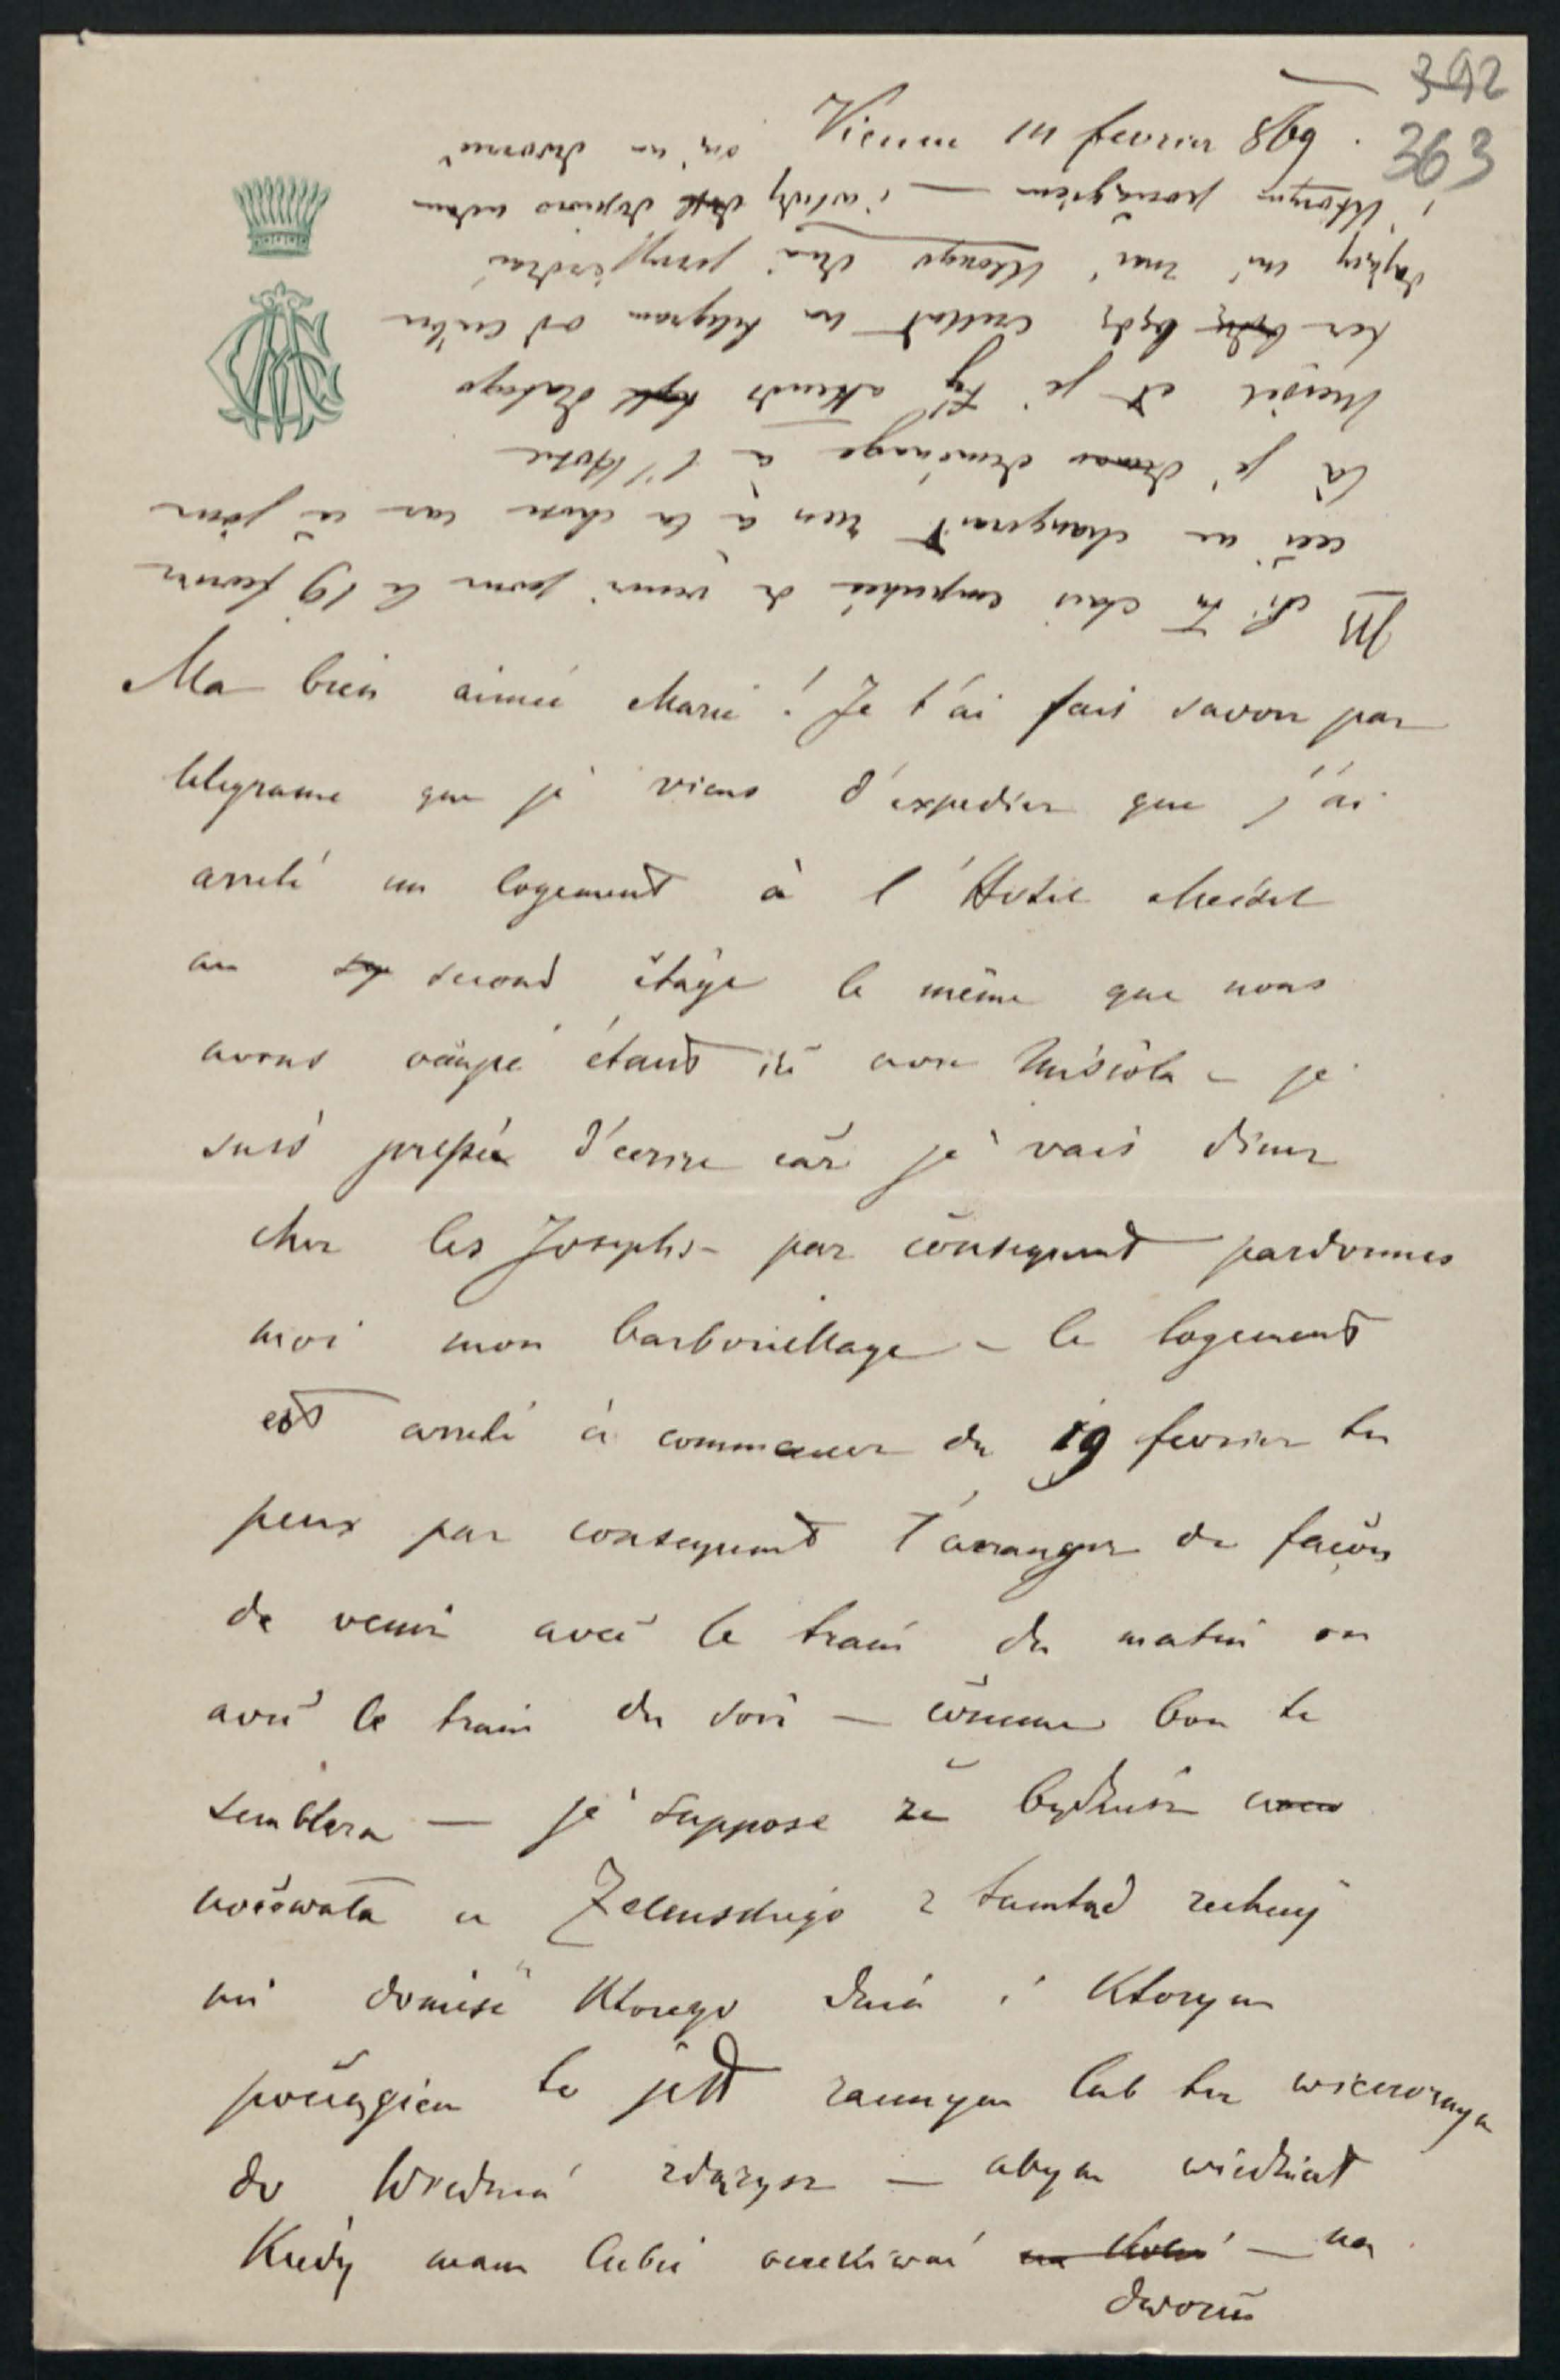 392
363
Vienne 14 fevrier 869.
Ma bien aimée Marie! Je t'ai fais savoir par
telegrame que je viens d'expedier que j'ai
arreté un logement à l'Hotel Meisel
au second étage le même que nous
avons occupé étant ici avec Misiola – je
suis pressée d'ecrire car je vais diner
chez les Josephs – par consequent pardonnes
moi mon barbouillage – le logement
est arreté à commencer du 19 fevrier tu
peux par consequent t'arranger de façon
de venir avec le train du matin ou
avec le train du soir — comme bon te
semblera — je suppose że będziesz
nocowała u Zelenskiego z tamtąd zechciej
mi donieść Ktorego dnia i Ktorym
pociągiem to jest rannym lub tez wieczornym
do Wiednia zdążysz — abym wiedział
Kiedy mam Ciebie oczekiwać na Kolei — na
dworcu
si tu étais empechée de venir pour le 19 fevrier
ceci ne changerait rien à la chose car ce jour
là je demenage à l'Hotel
Meisel et je t'y attends dlatego
tez będę czekał na telegram od Ciebie
dajesz mi znać Ktorego dnia przyjeżdżasz
i Ktorym pociągiem — i wtedy dopiero udam
się na dworzec